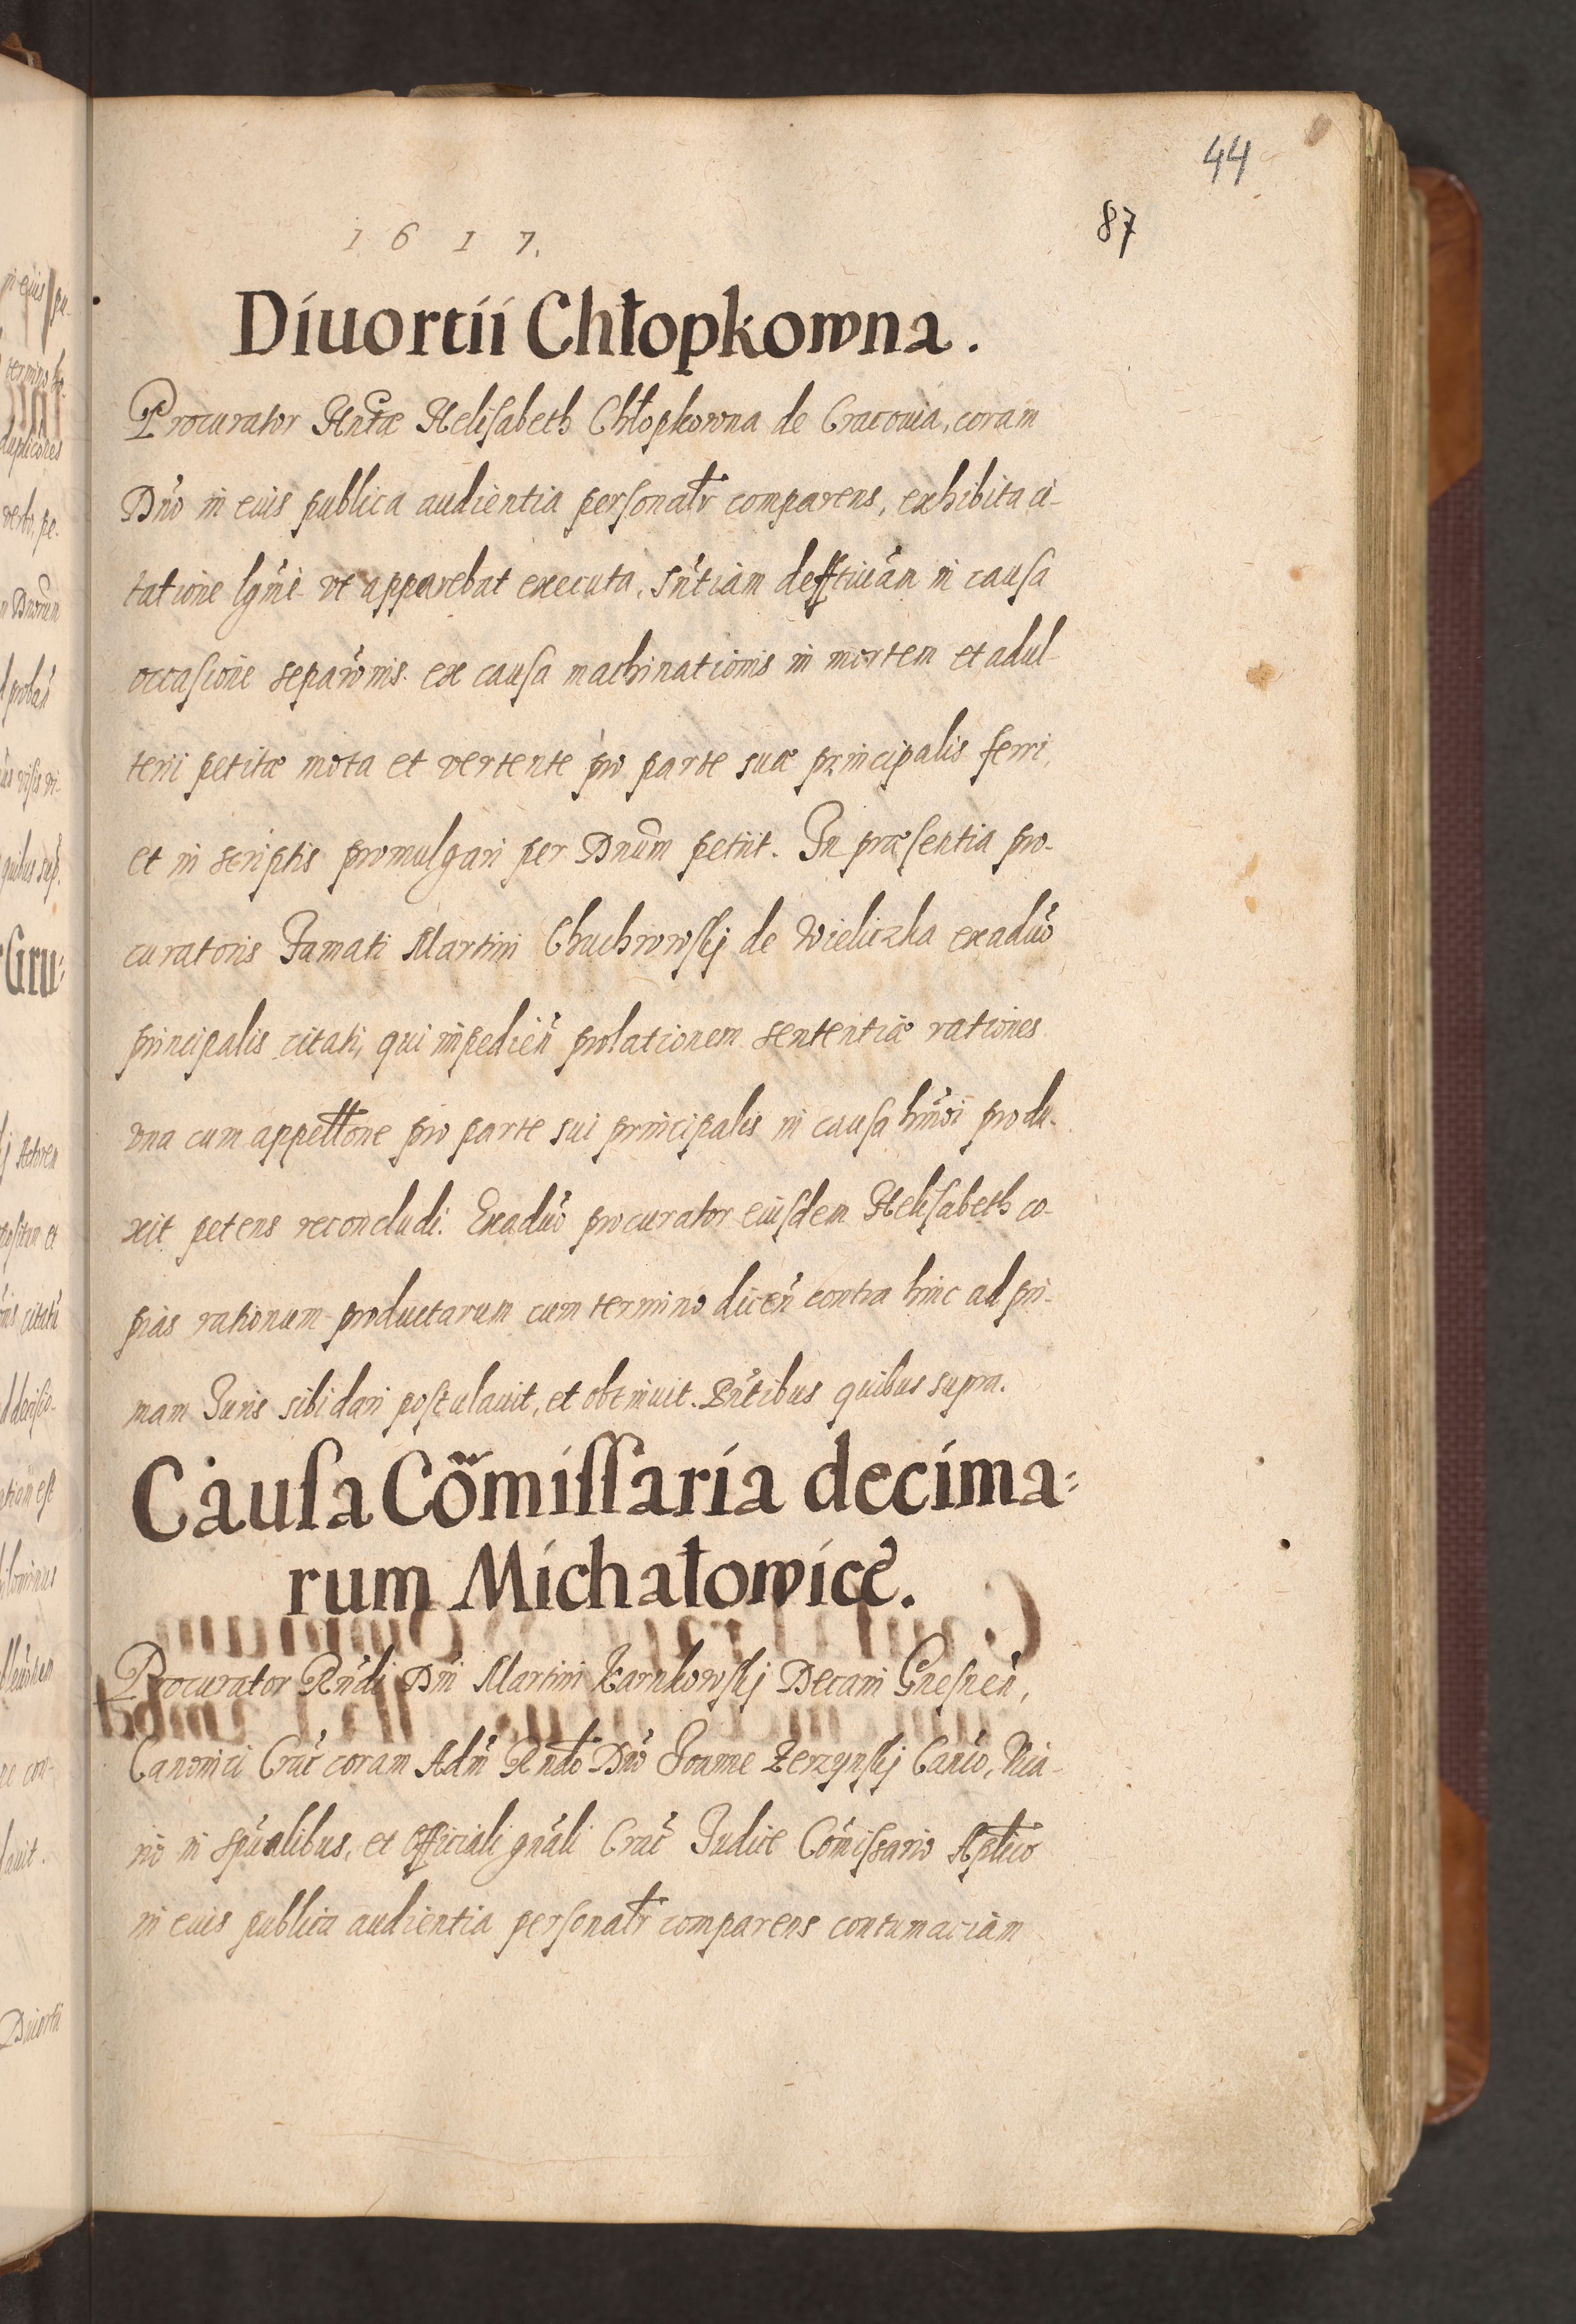 44
87
1 6 1 7.
Diuortii Chłopkowna.
Procurator Hntæ Helisabeth Chłopkowna de Cracouia, coram
Dño in eius publica audientia personalr comparens, exhibita ci-
tatione lgmè vt apparebat executa, sñtiam deffitiuam in causa
occasione separõnis ex causa machinationis in mortem et adul-
terii petitæ mota et vertente pro parte suæ principalis ferri,
et in scriptis promulgari per Dnum petiit. In præsentia pro-
curatoris Famati Martini Chuchrowskj de Wieliczka exaduo
principalis citati, qui impedieñ prolationem sententiæ rationes
vna cum appellõne pro parte sui principalis in causa hmõi produ-
xit petens reconcludi. Exaduo procurator eiusdem Helisabeth co-
pias rationum productarum cum termino diceñ contra hinc ad pri-
mam Juris sibi dari postulauit, et obtinuit. Pñtibus quibus supra.
Causa Cõmissaria decima:
rum Michałowice.
Procurator Rñdi Dñi Martini Karnkowskj Decani Gnesneñ,
Canonici Crac̃ coram Adm̃ Rndo Dño Joanne Zerzynskj Canco, Vica-
rio in spũalibus, et officiali gñali Crac̃ Judice Cõmissario Aplico
in eius publica audientia personalr comparens contumaciam